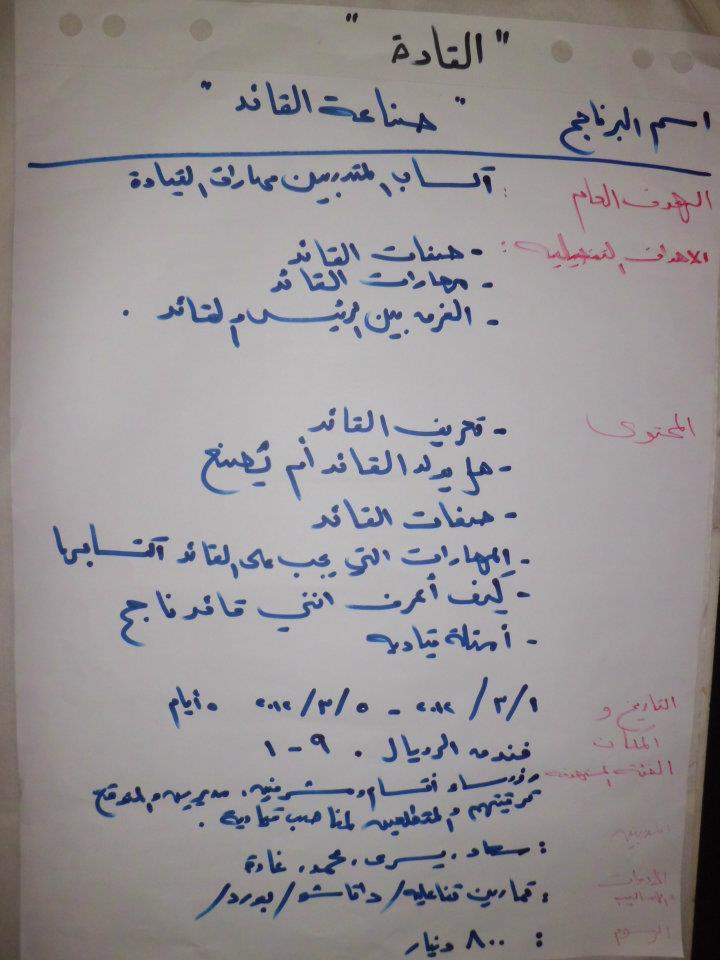 " القادة "
اسم البرنامج " صناعة القائد "
الهدف العام : اكساب المتدربين مهارات القيادة
الاهداف التفصيلية : - صفات القائد
- مهارات القائد
- الفرق بين الرئيس والقائد .
المحتوى - تعريف القائد
- هل يولد القائد أم يُصنع
- صفات القائد
- المهارات التي يجب على القائد اكتسابها
- كيف أعرف انني قائد ناجح
- أمثلة قياديه
التاريخ و ٢٠١٢/٣/١ - ٢٠١٢/٣/٥ ٥ أيام
المكان فندق الرويال . ٩ - ١
الفئة المستهدفه رؤوساء أقسام ومشرفين، مديرين والمتوقع
ترقيتهم والمتطلعين لمناصب قياديه .
المدربين : سعاد، يسرى، محمد، غادة
والاساليب : تمارين تفاعليه / داتاشو / بورد /
الرسوم : ٨٠٠ دينار